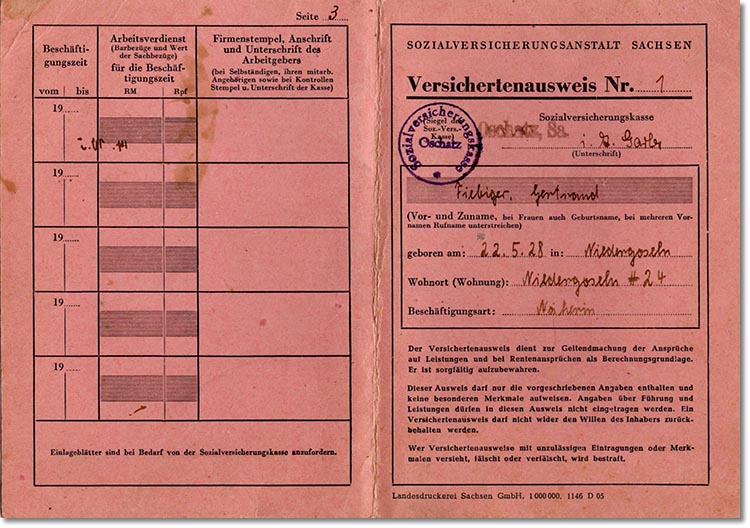 Seite 3
Beschäfti-
gungszeit
vom bis
Arbeitsverdienst
(Barbezüge und Wert
der Sachbezüge)
für die Beschäf-
tigungszeit
RM Rpf
Firmenstempel, Anschrift
und Unterschrift des
Arbeitgebers
(bei Selbständigen, ihren mitarb.
Angehörigen sowie bei Kontrollen
Stempel u. Unterschrift der Kasse)
19......
19......
19......
19......
19......
Einlageblätter sind bei Bedarf von der Sozialversicherungskasse anzufordern.
SOZIALVERSICHERUNGSANSTALT SACHSEN
Versichertenausweis Nr. 1
Sozialversicherungskasse
(Siegel der
Soz.-Vers.-
Kasse)
Sozialversicherungskasse
Oschatz
Oschatz, Sa.
(Unterschrift)
Fiebiger, Gertraud
(Vor- und Zuname, bei Frauen auch Geburtsname, bei mehreren Vor-
namen Rufname unterstreichen)
geboren am: 22.5.28 in: Niedergoseln
Wohnort (Wohnung): Niedergoseln #24
Beschäftigungsart: Näherin
Der Versichertenausweis dient zur Geltendmachung der Ansprüche
auf Leistungen und bei Rentenansprüchen als Berechnungsgrundlage.
Er ist sorgfältig aufzubewahren.
Dieser Ausweis darf nur die vorgeschriebenen Angaben enthalten und
keine besonderen Merkmale aufweisen. Angaben über Führung und
Leistungen dürfen in diesen Ausweis nicht eingetragen werden. Ein
Versichertenausweis darf nicht wider den Willen des Inhabers zurück-
behalten werden.
Wer Versichertenausweise mit unzulässigen Eintragungen oder Merk-
malen versieht, fälscht oder verfälscht, wird bestraft.
Landesdruckerei Sachsen GmbH. 1 000 000. 1146 D 05